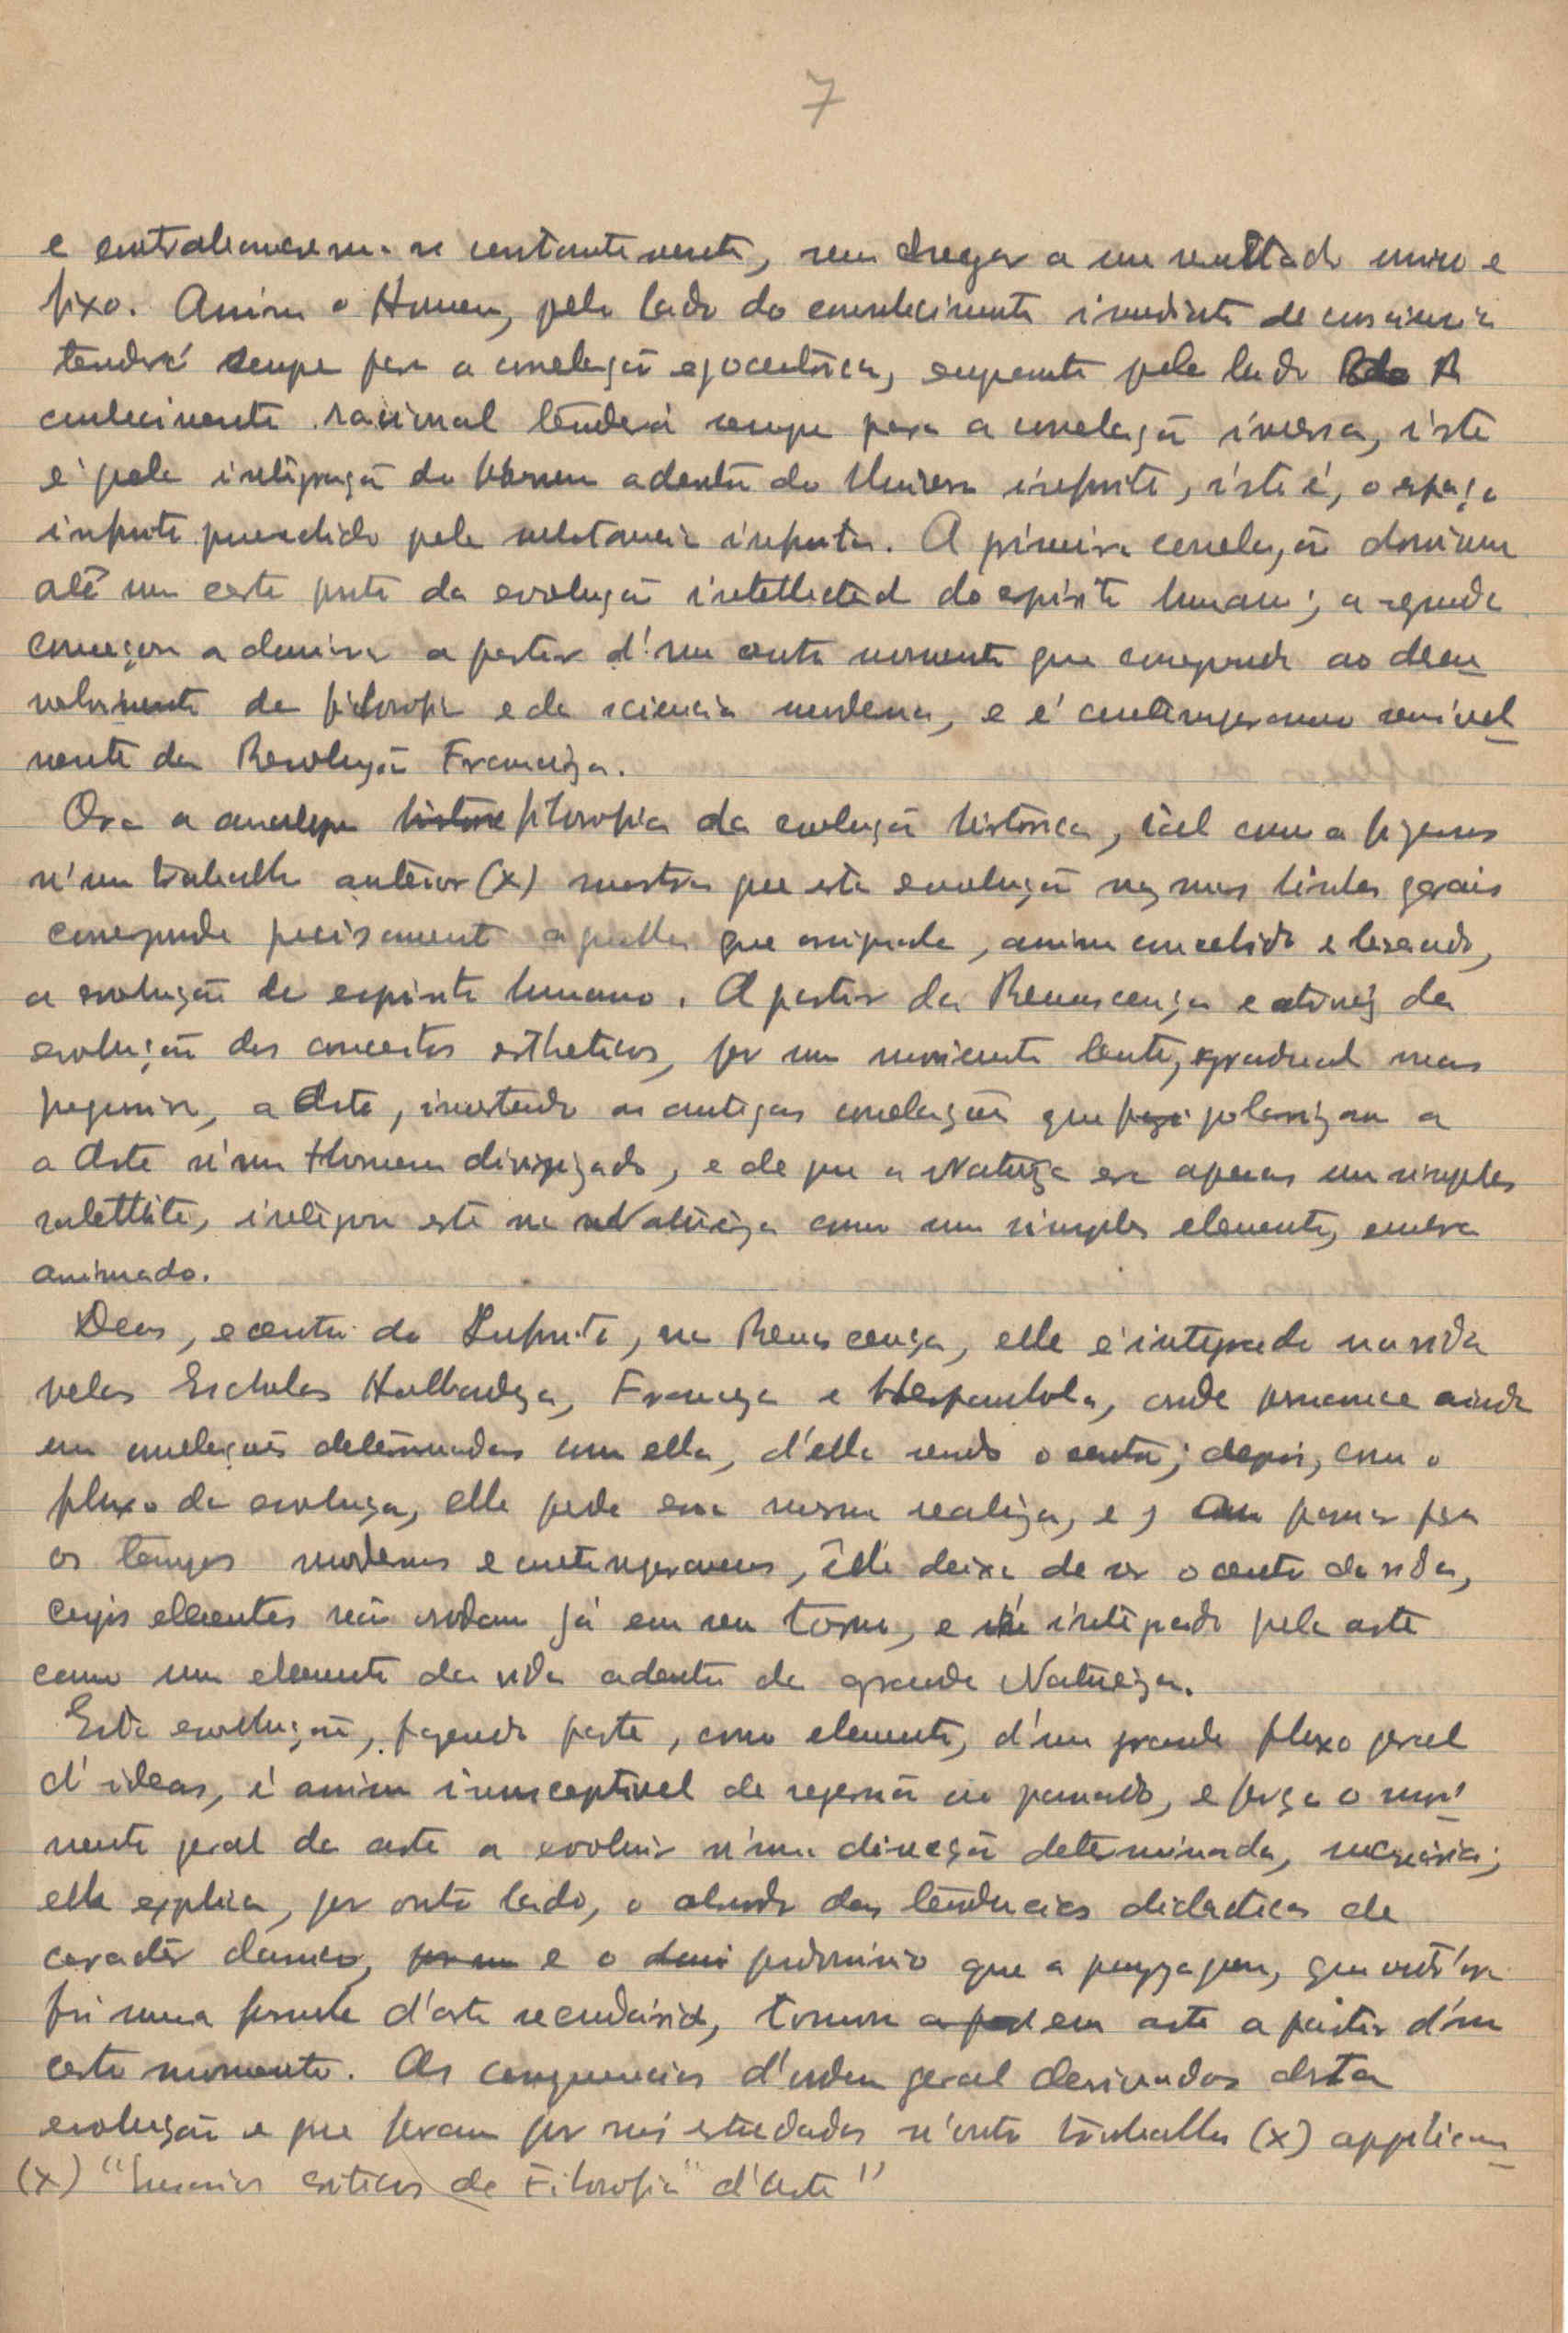 7
e contrabalancearem-se constantemente, sem chegar a um resultado unico e
fixo. Assim o Homem, pelo lado do conhecimento imediato de consciencia
tenderá sempre para a correlação egocentrica, emquanto pelo lado do
conhecimento racional tenderá sempre para a correlação inversa, isto
é pela integração do Homem adentro do Universo infinito, isto é, o espaço
infinito preenchido pela substancia infinita. A primeira correlação dominou
até um certo ponto da evolução intellectual do espirito humano; a segunda
começou a dominar a partir d'um certo momento que corresponde ao desen
volvimento da filosofia e da sciencia moderna, e é contemporaneo sensivel
mente da Revolução Franceza.
Ora a filosofica da evolução historica, tal como a fizemos
n'um trabalho anterior (x) mostra que esta evolução nas suas linhas gerais
corresponde precisamente aquella que assignala, assim concebido e
a evolução do espirito humano. A partir da Renascença e atravez da
evolução dos conceitos estheticos, por um movimento lento, gradual mas
progressivo, a Arte, invertendo as antigas correlações que polarizam a
a Arte n'um Homem divinizado, e de que a Natureza era apenas um simples
satellite, integrou este na Natureza como um simples elemento, embora
animado.
Deus, e centro do Infinito, na Renascença, elle é integrado na vida
pelas Escholas Hollandeza, Franceza e Hespanhola, onde permanece ainda
em correlações determinadas com ella, d'ella sendo o centro; depois, com o
fluxo da evolução, elle perde essa mesma realeza, e, ao passar para
os tempos modernos e contemporaneos, elle deixa de ser o centro da vida,
cujos elementos não rodam já em seu torno, e é integrado pela arte
como um elemento da vida adentro da grande Natureza.
Esta evolução, fazendo parte, como elemento, d'um grande fluxo geral
d'ideas, é assim insusceptivel de regressão ao passado, e força o movi
mento geral da arte a evoluir n'uma direcção determinada, necessaria;
ella explica, por outro lado, o abandono das tendencias didacticas de
caracter classico, e o predominio que a payzagem, que outr'ora
foi uma forma d'arte secundaria, tomou em arte a partir d'um
certo momento. As consequencias d'ordem geral derivadas desta
evolução e que foram por nós estudadas n'outro trabalho (x) applicam
(x) "Ensaios criticos de Filosofia" d'Arte"